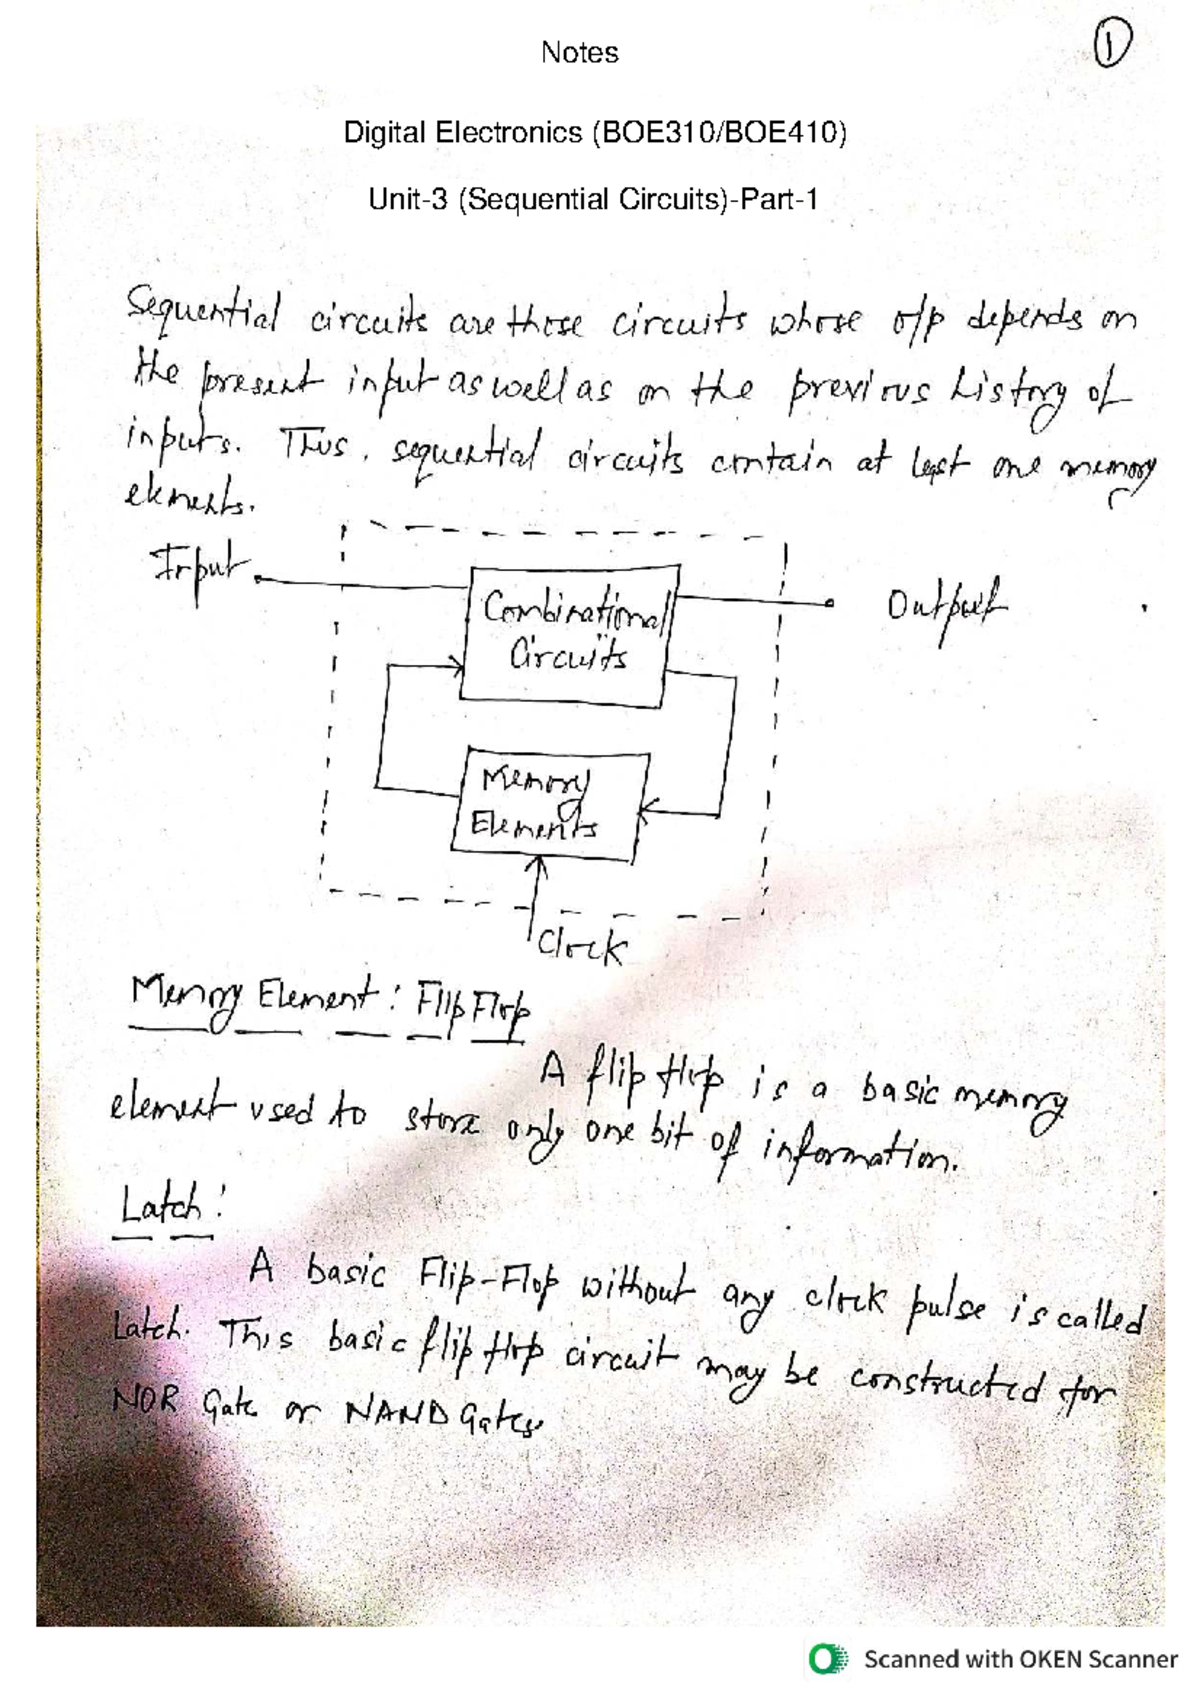 ①
Notes
Digital Electronics (BOE310/BOE410)
Unit-3 (Sequential Circuits)-Part-1
Sequential circuits are those circuits whose o/p depends on
the present input as well as on the previous history of
inputs. Thus, sequential circuits contain at least one memory
elements.
Input
Combinational
Circuits
Output
Memory
Elements
Clock
Memory Element: Flip Flop
A flip flop is a basic memory
element used to store only one bit of information.
Latch:
A basic Flip-Flop without any clock pulse is called
Latch. This basic flip flop circuit may be constructed for
NOR Gate or NAND Gates.
Scanned with OKEN Scanner